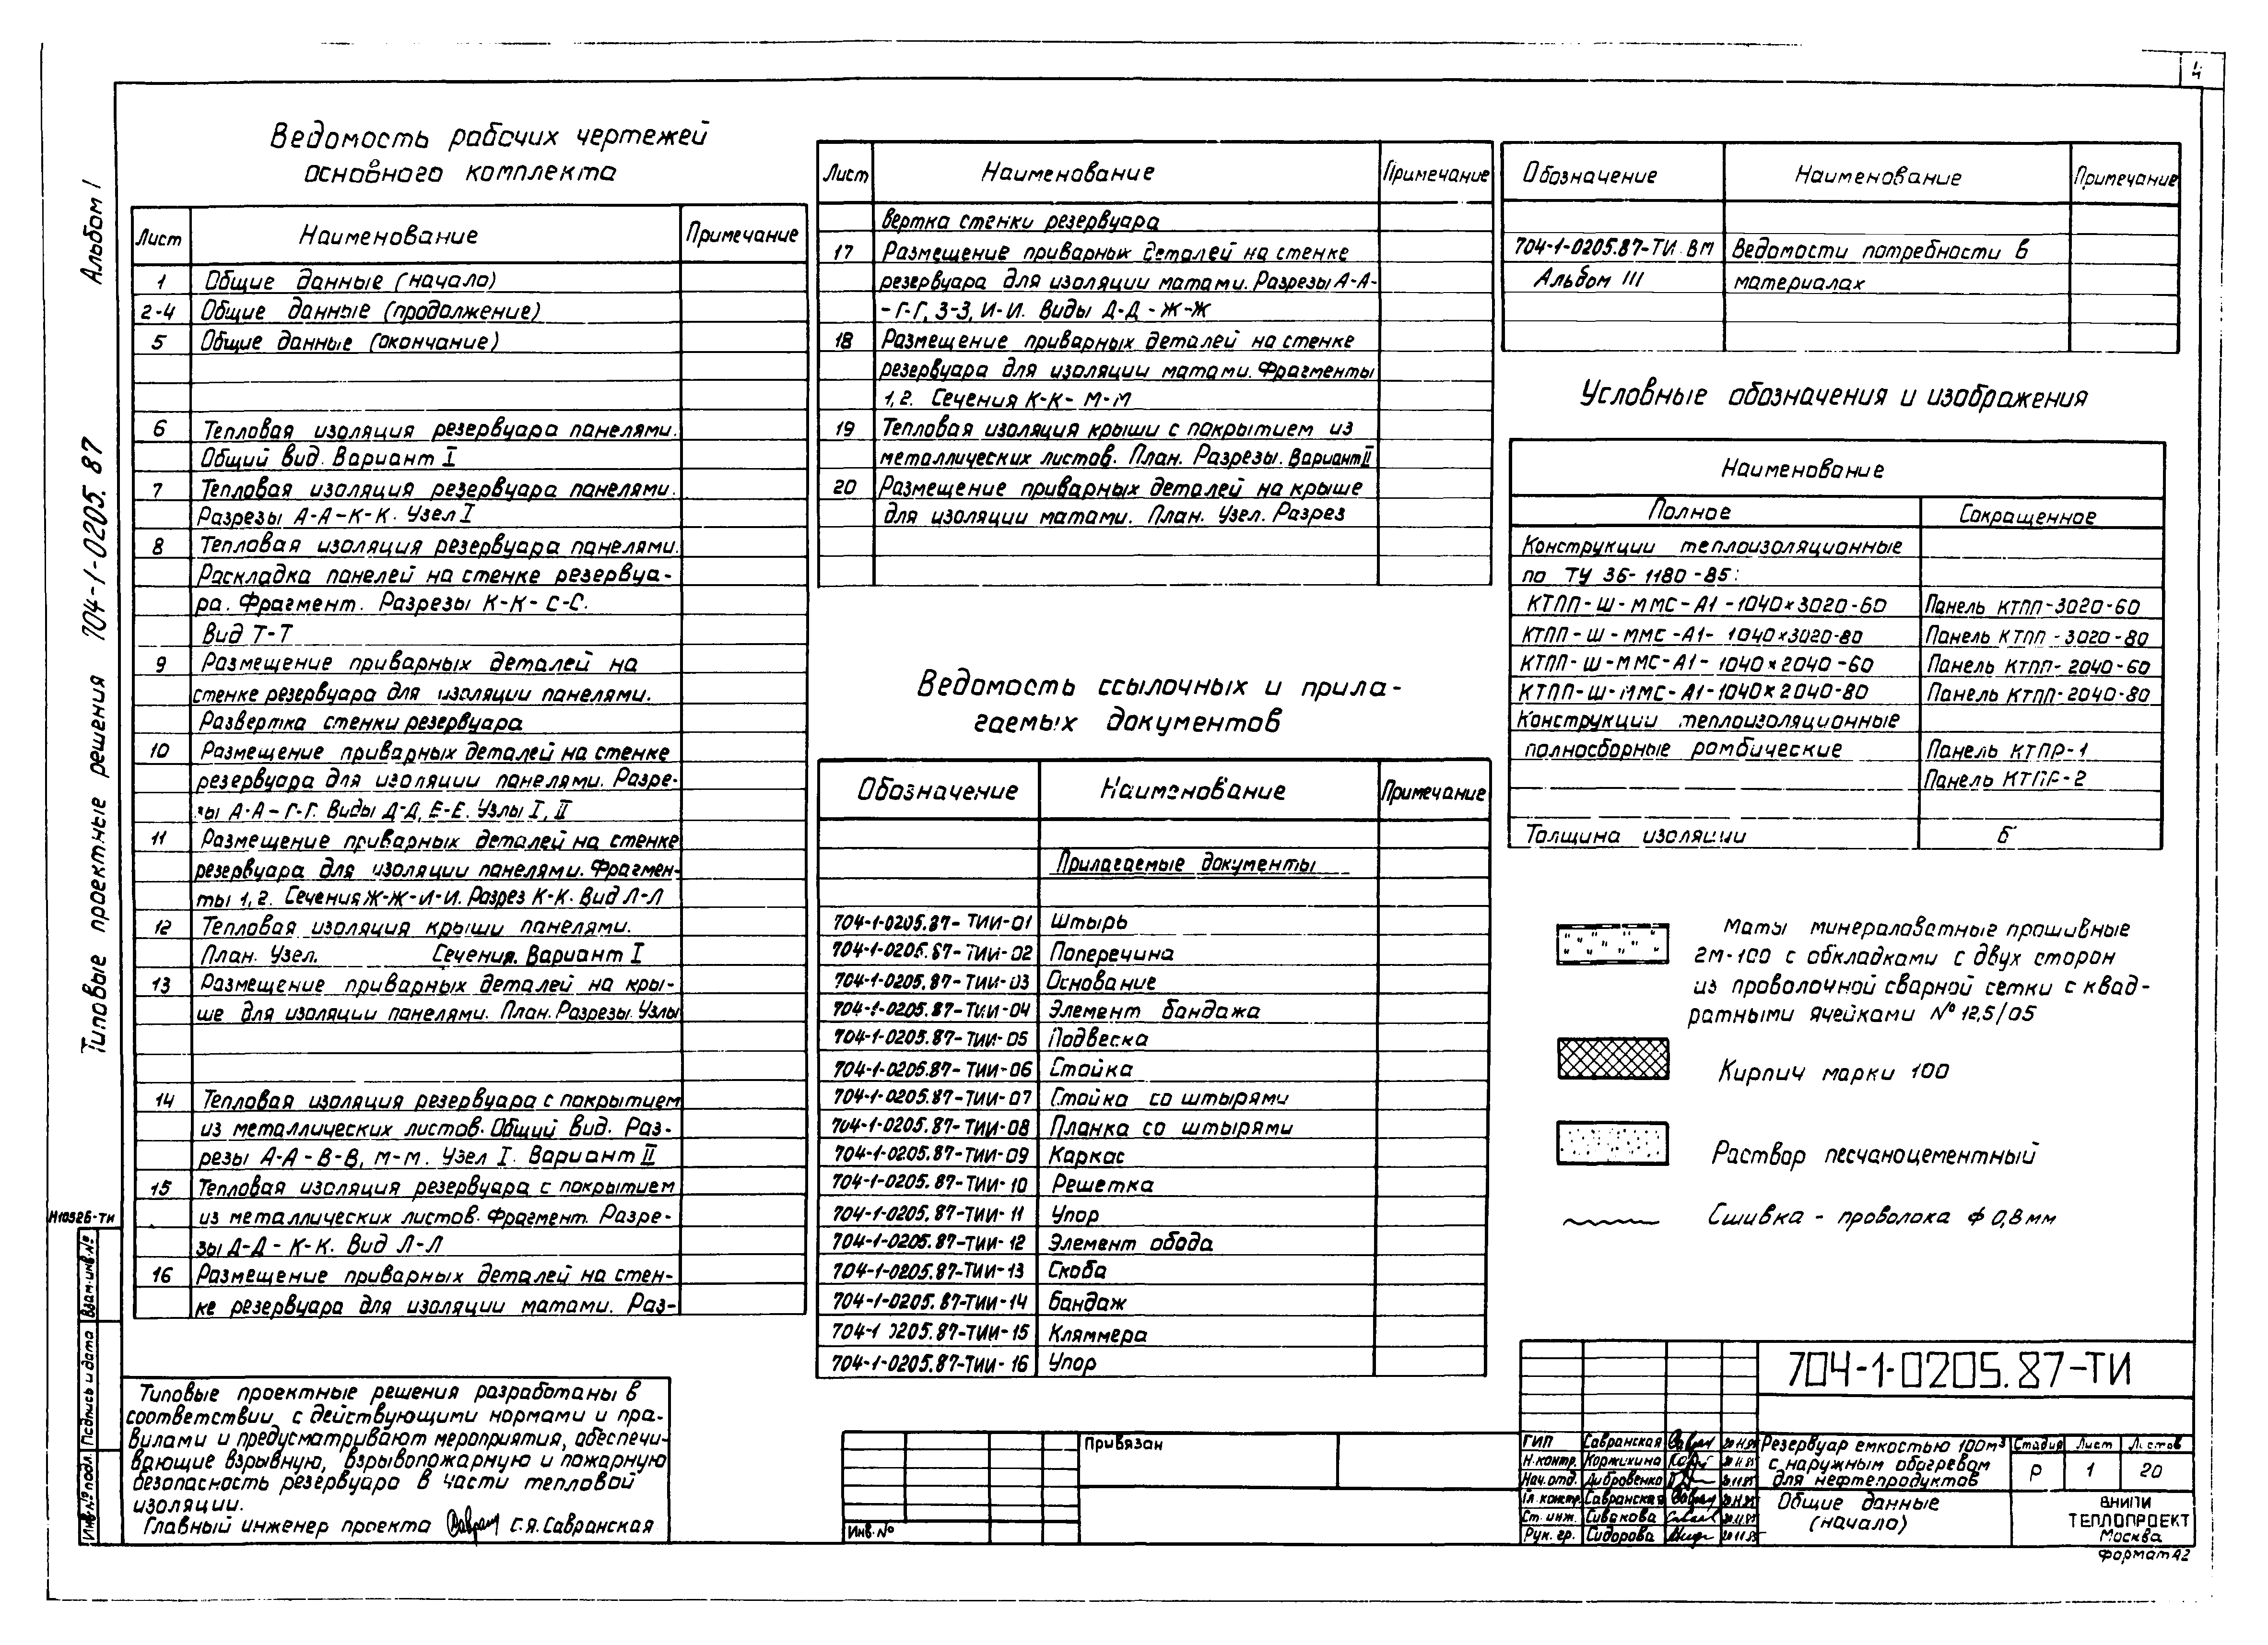 4
Альбом I
Типовые проектные решения 704-1-0205.87
Ведомость рабочих чертежей
основного комплекта
Лист Наименование Примечание
1 Общие данные (начало)
2-4 Общие данные (продолжение)
5 Общие данные (окончание)
6 Тепловая изоляция резервуара панелями.
Общий вид. Вариант I
7 Тепловая изоляция резервуара панелями.
Разрезы А-А-К-К. Узел I
8 Тепловая изоляция резервуара панелями.
Раскладка панелей на стенке резервуа-
ра. Фрагмент. Разрезы К-К- С-С.
Вид Т-Т
9 Размещение приварных деталей на
стенке резервуара для изоляции панелями.
Развертка стенки резервуара
10 Размещение приварных деталей на стенке
резервуара для изоляции панелями. Разре-
зы А-А-Г-Г. Виды Д-Д, Е-Е. Узлы I, II
11 Размещение приварных деталей на стенке
резервуара для изоляции панелями. Фрагмен-
ты 1, 2. Сечения Ж-Ж-И-И. Разрез К-К. Вид Л-Л
12 Тепловая изоляция крыши панелями.
План. Узел. Сечения. Вариант I
13 Размещение приварных деталей на кры-
ше для изоляции панелями. План. Разрезы. Узлы
14 Тепловая изоляция резервуара с покрытием
из металлических листов. Общий вид. Раз-
резы А-А-В-В, М-М. Узел I. Вариант II
15 Тепловая изоляция резервуара с покрытием
из металлических листов. Фрагмент. Разре-
зы Д-Д - К-К. Вид Л-Л
16 Размещение приварных деталей на стен-
ке резервуара для изоляции матами. Раз-
Лист Наименование Примечание
вертка стенки резервуара
17 Размещение приварных деталей на стенке
резервуара для изоляции матами. Разрезы А-А-
-Г-Г, З-З, И-И. Виды Д-Д - Ж-Ж
18 Размещение приварных деталей на стенке
резервуара для изоляции матами. Фрагменты
1, 2. Сечения К-К- М-М
19 Тепловая изоляция крыши с покрытием из
металлических листов. План. Разрезы. Вариант II
20 Размещение приварных деталей на крыше
для изоляции матами. План. Узел. Разрез
Ведомость ссылочных и прила-
гаемых документов
Обозначение Наименование Примечание
Прилагаемые документы
704-1-0205.87-ТИИ-01 Штырь
704-1-0205.87-ТИИ-02 Поперечина
704-1-0205.87-ТИИ-03 Основание
704-1-0205.87-ТИИ-04 Элемент бандажа
704-1-0205.87-ТИИ-05 Подвеска
704-1-0205.87-ТИИ-06 Стойка
704-1-0205.87-ТИИ-07 Стойка со штырями
704-1-0205.87-ТИИ-08 Планка со штырями
704-1-0205.87-ТИИ-09 Каркас
704-1-0205.87-ТИИ-10 Решетка
704-1-0205.87-ТИИ-11 Упор
704-1-0205.87-ТИИ-12 Элемент обода
704-1-0205.87-ТИИ-13 Скоба
704-1-0205.87-ТИИ-14 Бандаж
704-1 0205.87-ТИИ-15 Кляммера
704-1-0205.87-ТИИ-16 Упор
Обозначение Наименование Примечание
704-1-0205.87-ТИ.ВМ Ведомости потребности в
Альбом III материалах
Условные обозначения и изображения
Наименование
Полное Сокращенное
Конструкции теплоизоляционные
по ТУ 36-1180-85:
КТПП-Ш-ММС-А1-1040×3020-60 Панель КТПП-3020-60
КТПП-Ш-ММС-А1-1040×3020-80 Панель КТПП-3020-80
КТПП-Ш-ММС-А1-1040×2040-60 Панель КТПП-2040-60
КТПП-Ш-ММС-А1-1040×2040-80 Панель КТПП-2040-80
Конструкции теплоизоляционные
полносборные ромбические Панель КТПР-1
Панель КТПР-2
Толщина изоляции Б
Маты минераловатные прошивные
2М-100 с обкладками с двух сторон
из проволочной сварной сетки с квад-
ратными ячейками № 12,5/05
Кирпич марки 100
Раствор песчаноцементный
Сшивка - проволока ф 0,8 мм
Типовые проектные решения разработаны в
соответствии с действующими нормами и пра-
вилами и предусматривают мероприятия, обеспечи-
вающие взрывную, взрывопожарную и пожарную
безопасность резервуара в части тепловой
изоляции.
Главный инженер проекта С.Я.Савранская
Привязан
Инв.№
704-1-0205.87-ТИ
ГИП Савранская
Н.контр. Коржикина
Нач.отд. Дибровенко
Гл.констр. Савранская
Ст.инж. Сивакова
Рук.гр. Сидорова
Резервуар емкостью 100м³
с наружным обогревом
для нефтепродуктов
Стадия Лист Листов
Р 1 20
Общие данные
(начало)
ВНИПИ
ТЕПЛОПРОЕКТ
Москва
Формат А2
Взам.инв.№
Подпись и дата
Инв.№ подл.